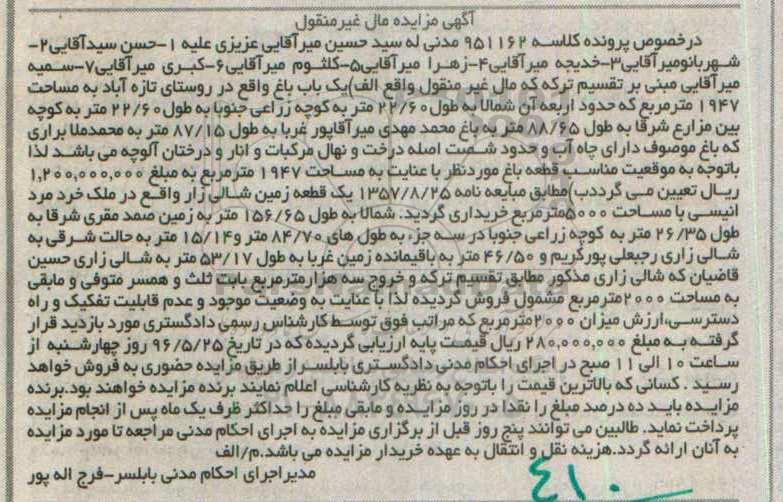 آگهی مزایده مال غیرمنقول
درخصوص پرونده کلاسه ۹۵۱۱۶۲ مدنی له سید حسین میرآقایی عزیزی علیه ۱-حسن سیدآقایی۲-
شهربانومیرآقایی۳-خدیجه میرآقایی۴-زهرا میرآقایی۵-کلثوم میرآقایی۶-کبری میرآقایی۷-سمیه
میرآقایی مبنی بر تقسیم ترکه که مال غیر منقول واقع الف)یک باب باغ واقع در روستای تازه آباد به مساحت
۱۹۴۷ مترمربع که حدود اربعه آن شمالا به طول ۲۲/۶۰ متر به کوچه زراعی جنوبا به طول ۲۲/۶۰ متر به کوچه
بین مزارع شرقا به طول ۸۸/۶۵ متر به باغ محمد مهدی میرآقاپور غربا به طول ۸۷/۱۵ متر به محمدملا براری
که باغ موصوف دارای چاه آب و حدود شصت اصله درخت و نهال مرکبات و انار و درختان آلوچه می باشد لذا
باتوجه به موقعیت مناسب قطعه باغ موردنظر با عنایت به مساحت ۱۹۴۷ مترمربع به مبلغ ۱,۲۰۰,۰۰۰,۰۰۰
ریال تعیین می گرددب)مطابق مبایعه نامه ۱۳۵۷/۸/۲۵ یک قطعه زمین شالی زار واقع در ملک خرد مرد
انیسی با مساحت ۵۰۰۰مترمربع خریداری گردید. شمالا به طول ۱۵۶/۶۵ متر به زمین صمد مقری شرقا به
طول ۲۶/۳۵ متر به کوچه زراعی جنوبا در سه جزء به طول های ۸۴/۷۰ متر و۱۵/۱۴ متر به حالت شرقی به
شالی زاری رجبعلی پورکریم و ۴۶/۵۰ متر به باقیمانده زمین غربا به طول ۵۳/۱۷ متر به شالی زاری حسین
قاضیان که شالی زاری مذکور مطابق تقسیم ترکه و خروج سه هزارمترمربع بابت ثلث و همسر متوفی و مابقی
به مساحت ۲۰۰۰مترمربع مشمول فروش گردیده لذا با عنایت به وضعیت موجود و عدم قابلیت تفکیک و راه
دسترسی،ارزش میزان ۲۰۰۰مترمربع که مراتب فوق توسط کارشناس رسمی دادگستری مورد بازدید قرار
گرفته به مبلغ ۲۸۰,۰۰۰,۰۰۰ ریال قیمت پایه ارزیابی گردیده که در تاریخ ۹۶/۵/۲۵ روز چهارشنبه از
ساعت ۱۰ الی ۱۱ صبح در اجرای احکام مدنی دادگستری بابلسراز طریق مزایده حضوری به فروش خواهد
رسید . کسانی که بالاترین قیمت را باتوجه به نظریه کارشناسی اعلام نمایند برنده مزایده خواهند بود.برنده
مزایده باید ده درصد مبلغ را نقدا در روز مزایده و مابقی مبلغ را حداکثر ظرف یک ماه پس از انجام مزایده
پرداخت نماید. طالبین می توانند پنج روز قبل از برگزاری مزایده به اجرای احکام مدنی مراجعه تا مورد مزایده
به آنان ارائه گردد.هزینه نقل و انتقال به عهده خریدار مزایده می باشد.م/الف
مدیراجرای احکام مدنی بابلسر-فرج اله پور
۴۱۰